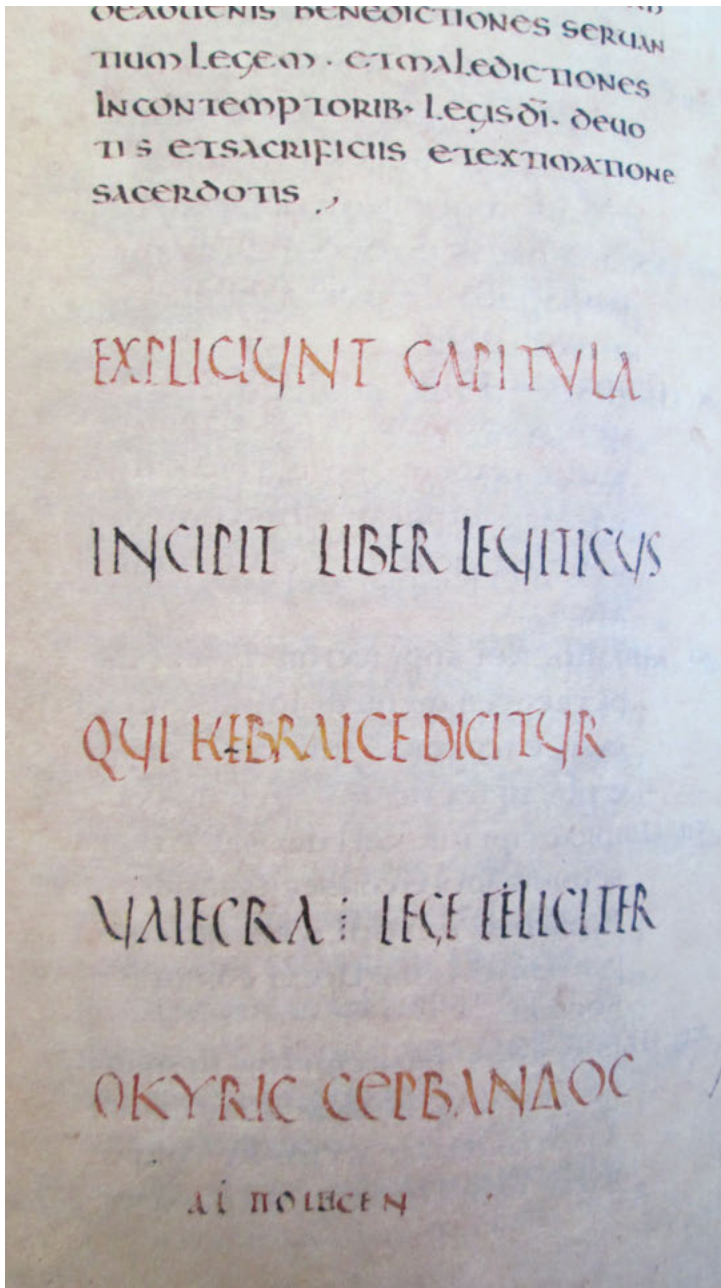 DEADUENIS BENEDICTIONES SERUAN
TIUM LEGEM · ET MALEDICTIONES
IN CONTEMPTORIB· LEGIS DĪ· DEUO
TIS ET SACRIFICIIS ET EXTIMATIONE
SACERDOTIS
EXPLICIUNT CAPITULA
INCIPIT LIBER LEUITICUS
QUI HEBRAICE DICITUR
UAIECRA ⁝ LEGE FELICITER
ΟΚΥRΙC CΕΡΒΑΝΔΟC
ΑΙ ΠΟΙΗCΕΝ